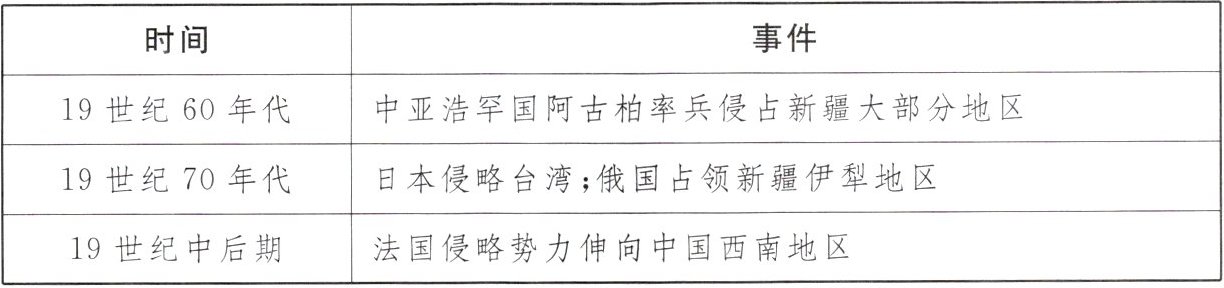 时间 事件
19世纪60年代 中亚浩罕国阿古柏率兵侵占新疆大部分地区
19世纪70年代 日本侵略台湾;俄国占领新疆伊犁地区
19世纪中后期 法国侵略势力伸向中国西南地区